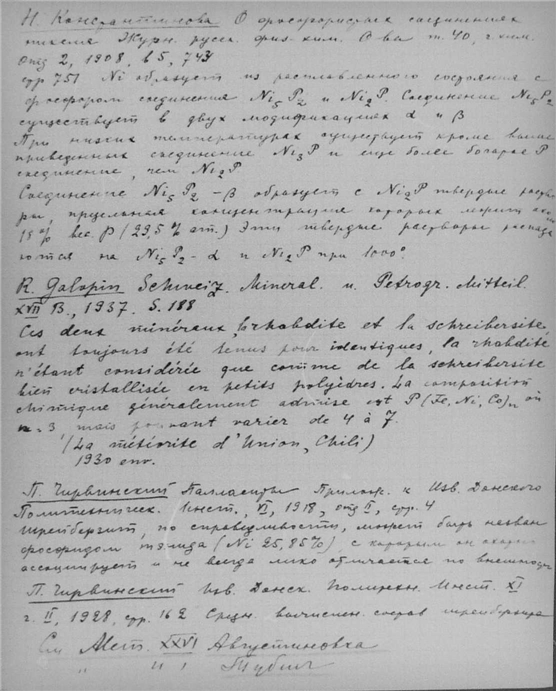 Н. Константинова О фосфористых соединениях
никеля Журн. русск. физ-хим. О-ва т. 40, г. хим.
отд 2, 1908, в 5, 743
стр 751 Ni образует из расплавленного состояния с
фосфором соединения Ni5P2 и Ni2P. Соединение Ni5P2
существует в двух модификациях α и β
При низких температурах существует кроме выше
приведенных соединение Ni3P и еще более богатое P
соединение, чем Ni2P
Соединение Ni5P2 – β образует с Ni2P твердые раство
ры, предельная концентрация которых
18% вес. P (29,5% ат.) Эти твердые растворы распада
ются на Ni5P2 - α и Ni2P при 1000°
R. Galopin Schweiz. Mineral. u. Petrogr. Mitteil.
XVII B., 1937. S. 188
Ces deux minéraux, rhabdite et la schreibersite
ont toujours été tenus pour identiques, la rhabdite
n'étant considérée que comme de la schreibersite
bien cristallisée en petits polyèdres. La composition
chimique généralement admise est P(Fe, Ni, Co)n où
n = 3, mais pouvant varier de 4 à 7.
(La météorite d'Union, Chili)
1930 env.
П. Чирвинский Палласиты Прилож. к Изв. Донского
Политехнич. Инст., VI, 1918, отд II, стр. 4
Шрейберзит, по справедливости, может быть назван
фосфидом (Ni 25,85%) с которым он
ассоциирует и не всегда легко отличается по внешности
П. Чирвинский Изв. Донск. Политехн. Инст. XI
г. II, 1928, стр. 162 Средн. вычислен. состав шрейберзита
См Мет. XXVI Августиновка
" " "